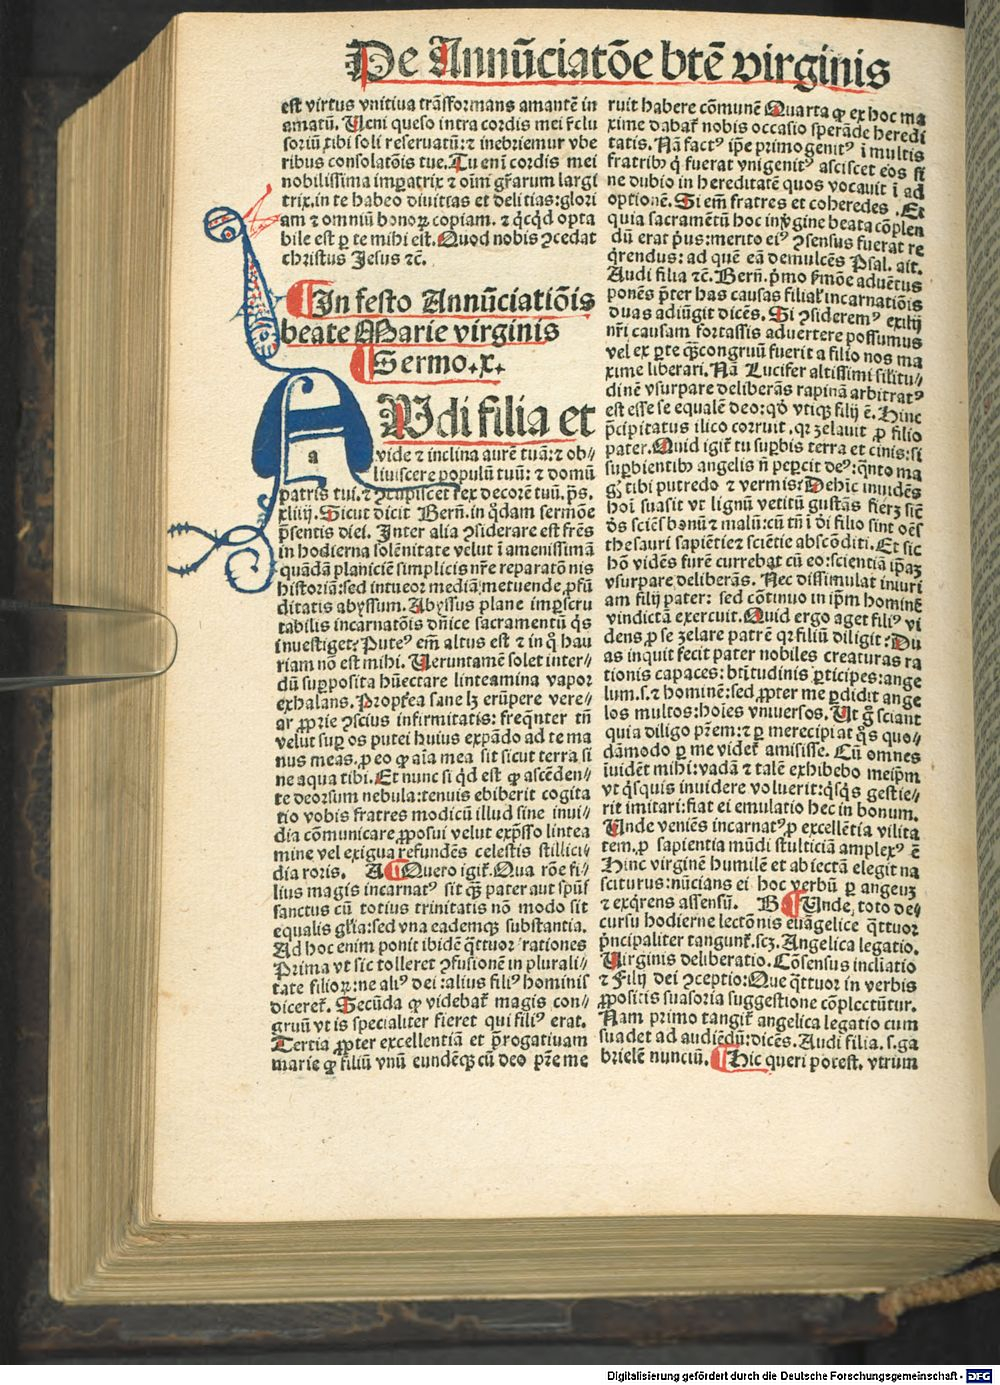 De Annūciatōe btē virginis
est virtus vnitiua trāsformans amantē in
amatū. Veni queso intra cordis mei reclu
soriū tibi soli reseruatū: ⁊ inebriemur vbe
ribus consolatōis tue. Tu eni cordis mei
nobilissima imꝑatrix ⁊ oīm gr̄arum largi
trix. in te habeo diuitias et delitias: glori
am ⁊ omniū bonoꝝ copiam. ⁊ qͥcqͥd opta
bile est ꝑ te mihi est. Quod nobis ꝯcedat
christus Jesus ⁊c̄.
In festo Annūciatiōis
beate Marie virginis
Sermo .x.
AVdi filia et
a
vide ⁊ inclina aurē tuā: ⁊ ob//
liuiscere populū tuū: ⁊ domū
patris tui. ⁊ ꝯcupiscet rex decorē tuū. p̄s.
xliiij. Sicut dicit Bern̄. in qͦdam sermōe
p̄sentis diei. Inter alia ꝯsiderare est frēs
in hodierna solēnitate velut i amenissimā
quādā planiciē simplicis nr̄e reparatōnis
historiā: sed intueor mediā metuende ꝓfū
ditatis abyssum. Abyssus plane imꝑscru
tabilis incarnatōis dn̄ice sacramentū qͥs
inuestiget? Puteꝰ em̄ altus est ⁊ in qͦ hau
riam nō est mihi. Veruntamē solet inter//
dū suꝑposita hūectare linteamina vapor
exhalans. Propterea sane lꝫ erūpere vere//
ar ꝓprie ꝯscius infirmitatis: freqn̄ter tn̄
velut suꝑ os putei huius expādo ad te ma
nus meas. ꝓ eo ꝙ aīa mea sit sicut terra si
ne aqua tibi. Et nunc si qͥd est ꝙ ascēden//
te deorsum nebula: tenuis ebiberit cogita
tio vobis fratres modicū illud sine inui//
dia cōmunicare ꝓposui velut exp̄sso lintea
mine vel exigua refundēs celestis stillici//
dia roris. A Quero igit̄. Qua rōe fi//
lius magis incarnatꝰ sit qͣꝫ pater aut spūs
sanctus cū totius trinitatis nō modo sit
equalis gl̄ia: sed vna eademqꝫ substantia.
Ad hoc enim ponit ibidē qͣttuor rationes
Prima vt sic tolleret ꝯfusionē in plurali//
tate filioꝝ: ne aliꝰ dei: alius filiꝰ hominis
diceret̄. Secūda ꝙ videbat̄ magis con//
gruū vt is specialiter fieret qui filiꝰ erat.
Tertia ꝓpter excellentiā et p̄rogatiuam
marie ꝙ filiū vnū eundēqꝫ cū deo p̄re me
ruit habere cōmunē Quarta ꝙ ex hoc ma
xime dabat̄ nobis occasio sperāde heredi
tatis. Nā factꝰ ip̄e primogenitꝰ i multis
fratribꝫ qͥ fuerat vnigenitꝰ asciscet eos si
ne dubio in hereditatē quos vocauit i ad
optionē. Si em̄ fratres et coheredes. Et
quia sacramētū hoc in v̓gine beata cōplen
dū erat pͥus: merito eiꝰ ꝯsensus fuerat re
qͥrendus: ad quē eā demulcēs Psal. ait.
Audi filia ⁊c̄. Bern̄. pͥmo sermōe aduētus
ponēs p̄ter has causas filial̓ incarnatiōis
duas adiūgit dicēs. Si ꝯsideremꝰ exilij
nr̄i causam fortassis aduertere possumus
vel ex ꝑte qͣꝫ congruū fuerit a filio nos ma
xime liberari. Nā Lucifer altissimi silitu//
dinē vsurpare deliberās rapinā arbitratꝰ
est esse se equalē deo: qd̓ vtiqꝫ filij ē. Hinc
p̄cipitatus ilico corruit. qꝛ zelauit ꝓ filio
pater. Quid igit̄ tu suꝑbis terra et cinis: si
suꝑbientibꝫ angelis nō peꝑcit deꝰ: qͣnto ma
gͥ tibi putredo ⁊ vermis? Dehīc inuidēs
hoī suasit vt lignū vetitū gustās fieret siē
dꝰ sciēs bonū ⁊ malū: cū tn̄ i dei filio sint oēs
thesauri sapiētie ⁊ sciētie abscōditi. Et sic
hō vidēs furē currebat cū eo: scientiā ip̄aꝫ
vsurpare deliberās. Nec dissimulat iniuri
am filij pater: sed cōtinuo in ip̄m hominē
vindictā exercuit. Quid ergo aget filiꝰ vi
dens ꝓ se zelare patrē qꝛ filiū diligit? Du
as inquit fecit pater nobiles creaturas ra
tionis capaces: bt̄itudinis ꝑticipes: ange
lum. s. ⁊ hominē: sed ꝓpter me ꝑdidit ange
los multos: hoīes vniuersos. Vt gͦ sciant
quia diligo p̄rem: ⁊ ꝑ me recipiat qͦs quo//
dāmodo ꝑ me videt̄ amisisse. Cū omnes
iuidēt mihi: vadā ⁊ talē exhibebo meip̄m
vt qͥsquis inuidere voluerit: qͥsqͥs gestie//
rit imitari: fiat ei emulatio hec in bonum.
Vnde veniēs incarnatꝰ ꝓ excellētia vilita
tem. ꝓ sapientia mūdi stulticiā amplexꝰ ē
Hinc virginē humilē et abiectā elegit na
sciturus: nūcians ei hoc verbū ꝑ angelū
⁊ exqͥrens assensū. B Vnde, toto de//
cursu hodierne lectōnis euāgelice qͣttuor
pͥncipaliter tangunt̄. scꝫ. Angelica legatio.
Virginis deliberatio. Cōsensus incliatio
⁊ Filij dei ꝯceptio: Que qͣttuor in verbis
ꝓpositis suasoria suggestione cōplectūtur.
Nam primo tangit̄ angelica legatio cum
suadet ad audiēdū: dicēs. Audi filia. s. ga
brielē nunciū. Hic queri potest. vtrum
Digitalisierung gefördert durch die Deutsche Forschungsgemeinschaft - DFG